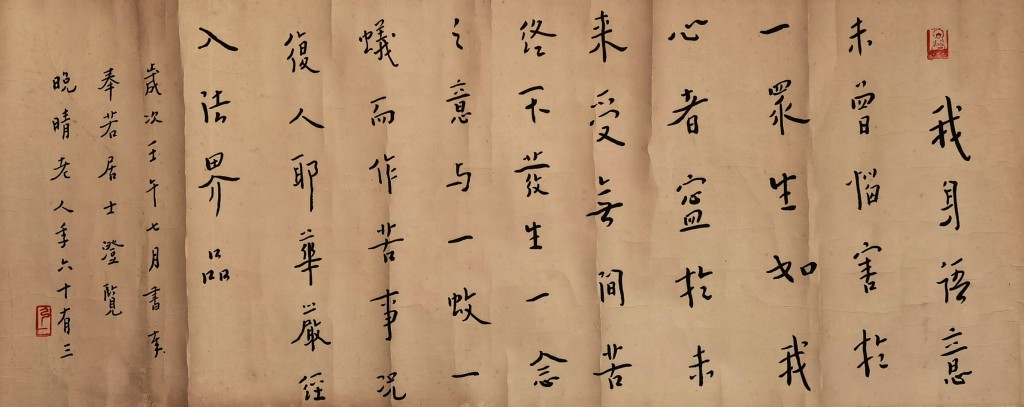 我身語意
未曾惱害於
一眾生如我
心者寧於未
来受無間苦
終不發生一念
之意与一蚊一
蟻而作苦事况
復人耶華嚴經
入法界品
歲次壬午七月書奉
奉若居士澄覽
晚晴老人年六十有三